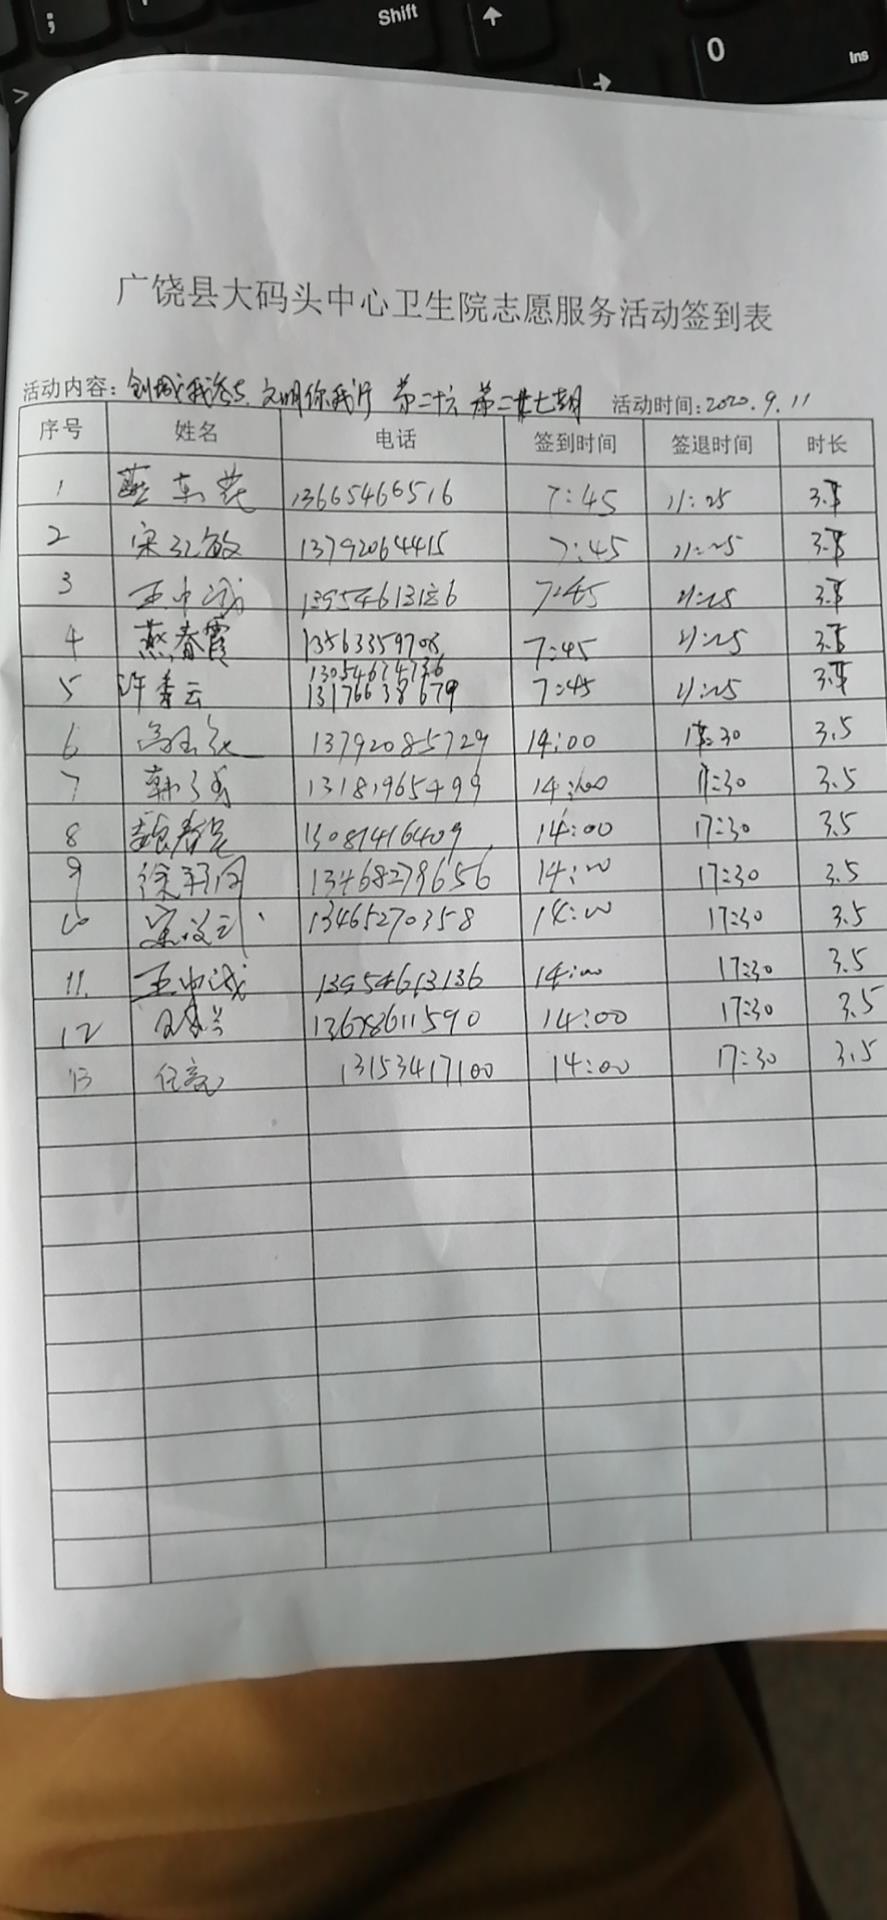 ; Shift ↑ 0 Ins
> →
广饶县大码头中心卫生院志愿服务活动签到表
活动内容: 创城我参与, 文明你我行 第二十六 第二十七期 活动时间: 2020.9.11
序号 姓名 电话 签到时间 签退时间 时长
1 13665466516 7:45 11:25
2 宋红敏 13792064415 7:45 11:25
3 王中城 7:45 11:25
4 燕春霞 13563359708 7:45 11:25
13054674736
5 许秀云 13176638679 7:45 11:25
6 13792085729 14:00 17:30 3.5
7 13181965499 14:00 17:30 3.5
8 魏春 13081416409 14:00 17:30 3.5
9 徐 13468279656 14:00 17:30 3.5
10 13465270358 14:00 17:30 3.5
11. 王中城 13954613136 14:00 17:30 3.5
12 14:00 17:30 3.5
13 任 13153417100 14:00 17:30 3.5